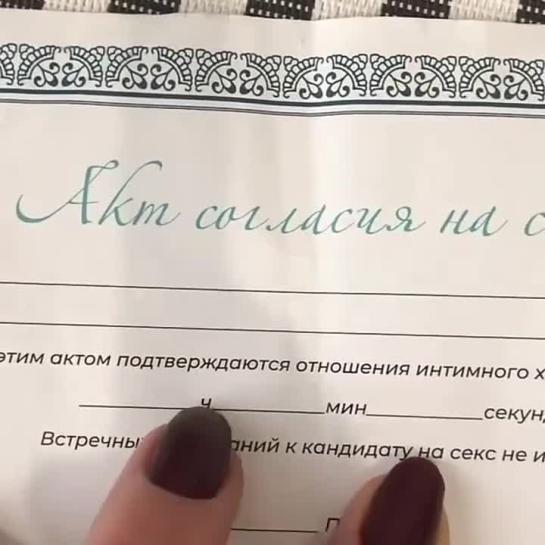 Акт согласия на с
этим актом подтверждаются отношения интимного х
ч мин секун
Встречны аний к кандидату на секс не и